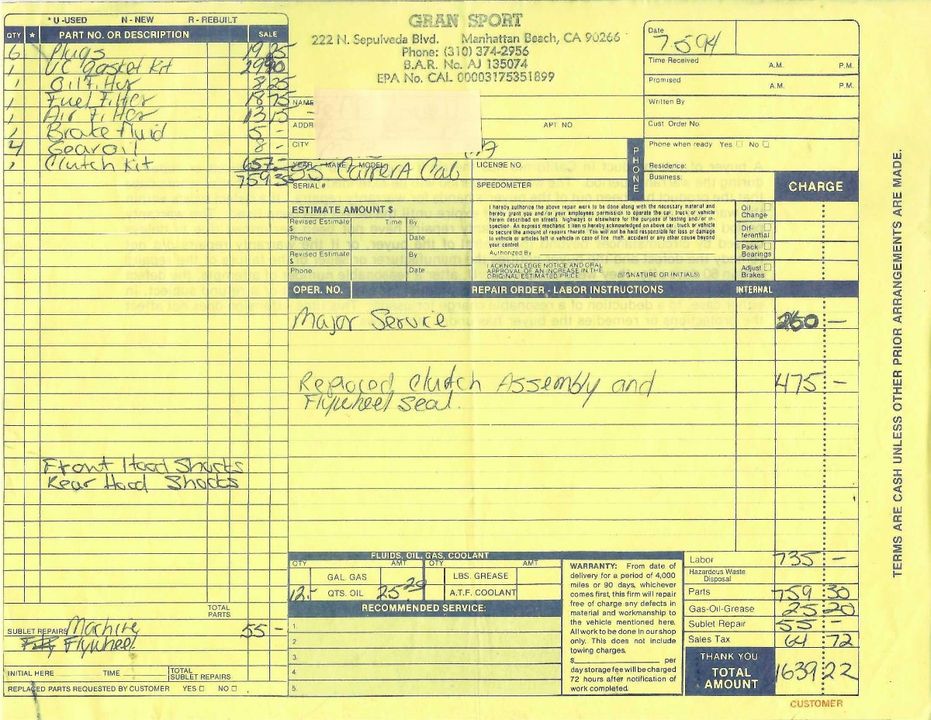 * U -USED N - NEW R - REBUILT
QTY * PART NO. OR DESCRIPTION SALE
6 Plugs 19 25
1 VC gasket Kit 29 90
1 Oil Filter 8 25
1 Fuel Filter 18 75
1 Air Filter 13 15
1 Brake fluid 5 -
4 Gear oil 8 -
1 Clutch Kit 657 -
759 30
Front Hood Shocks
Rear Hood Shocks
TOTAL PARTS
SUBLET REPAIRS Machine 55 -
Flywheel
INITIAL HERE TIME TOTAL SUBLET REPAIRS
REPLACED PARTS REQUESTED BY CUSTOMER YES NO
GRAN SPORT
222 N. Sepulveda Blvd. Manhattan Beach, CA 90266
Phone: (310) 374-2956
B.A.R. No. AJ 135074
EPA No. CAL 00003175351899
NAME
ADDR APT NO
CITY
YEAR - MAKE - MODEL LICENSE NO.
Carrera Cab
SERIAL # SPEEDOMETER
PHONE
Date 7 5 94
Time Received A.M. P.M.
Promised A.M. P.M.
Written By
Cust. Order No.
Phone when ready Yes No
Residence:
Business:
CHARGE
ESTIMATE AMOUNT $
Revised Estimate $ Time By
Phone Date
Revised Estimate $ By
Phone Date
I hereby authorize the above repair work to be done along with the necessary material and
hereby grant you and/or your employees permission to operate the car, truck or vehicle
herein described on streets, highways or elsewhere for the purpose of testing and/or in-
spection. An express mechanic's lien is hereby acknowledged on above car, truck or vehicle
to secure the amount of repairs thereto. You will not be held responsible for loss or damage
to vehicle or articles left in vehicle in case of fire, theft, accident or any other cause beyond
your control.
Authorized By
I ACKNOWLEDGE NOTICE AND ORAL
APPROVAL OF AN INCREASE IN THE
ORIGINAL ESTIMATED PRICE. (SIGNATURE OR INITIALS)
Oil Change
Dif- ferential
Pack Bearings
Adjust Brakes
OPER. NO. REPAIR ORDER - LABOR INSTRUCTIONS INTERNAL
Major Service 260 -
Replaced Clutch Assembly and 475 -
Flywheel seal.
FLUIDS, OIL, GAS, COOLANT
QTY AMT QTY AMT
GAL. GAS LBS. GREASE
12 - QTS. OIL 25.20 A.T.F. COOLANT
RECOMMENDED SERVICE:
1.
2
3.
4.
5.
WARRANTY: From date of
delivery for a period of 4,000
miles or 90 days, whichever
comes first, this firm will repair
free of charge any defects in
material and workmanship to
the vehicle mentioned here.
All work to be done in our shop
only. This does not include
towing charges.
$ per
day storage fee will be charged
72 hours after notification of
work completed.
Labor 735 -
Hazardous Waste Disposal
Parts 759 30
Gas-Oil-Grease 25 20
Sublet Repair 55 -
Sales Tax 64 72
THANK YOU
TOTAL AMOUNT 1639 22
CUSTOMER
TERMS ARE CASH UNLESS OTHER PRIOR ARRANGEMENTS ARE MADE.